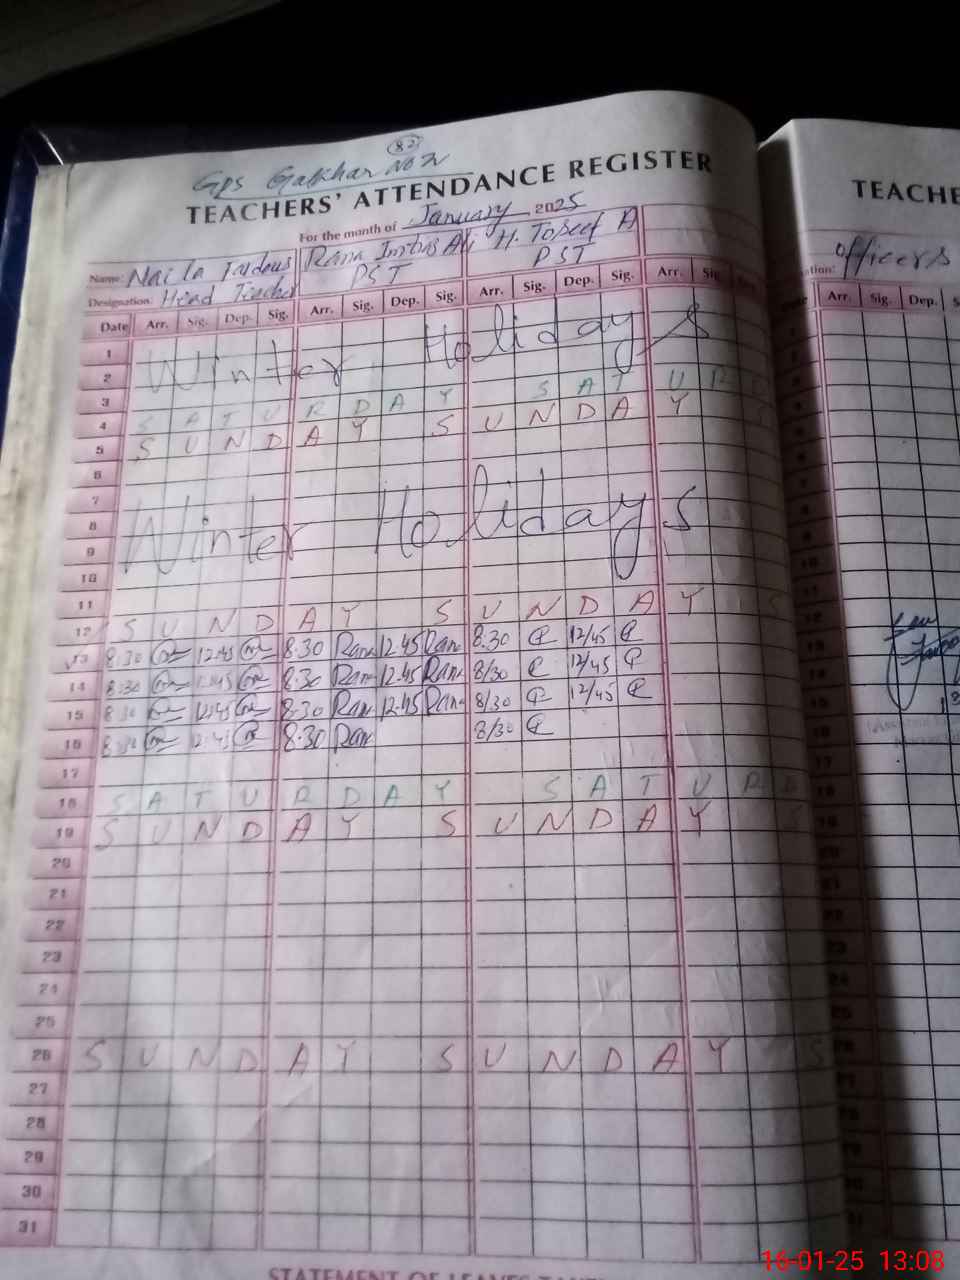 82
GPS Gakhar No 2
TEACHERS' ATTENDANCE REGISTER
For the month of January 2025
Name: Naila Rana H. Toseef A
Designation. Head Teacher PST PST
Date Arr. Sig. Dep. Sig. Arr. Sig. Dep. Sig. Arr. Sig. Dep. Sig. Arr. Sig.
1
2 Winter Holidays
3
4 SATURDAY SATUR
5 SUNDAY SUNDAY S
6
7
8 Winter Holidays
9
10
11
12 SUNDAY SUNDAY S
13 8:30 12:45 8:30 Rana 12:45 Rana 8:30 12/45
14 8:30 12:45 8:30 Rana 12:45 Rana 8/30 12/45
15 8:30 12:45 8:30 Rana 12:45 Rana 8/30 12/45
16 8:30 12:45 8:30 Rana 8/30
17
18 SATURDAY SATURD
19 SUNDAY SUNDAY
20
21
22
23
24
25
26 SUNDAY SUNDAY S
27
28
29
30
31
TEACHE
officers
Arr. Sig. Dep.
16-01-25 13:08